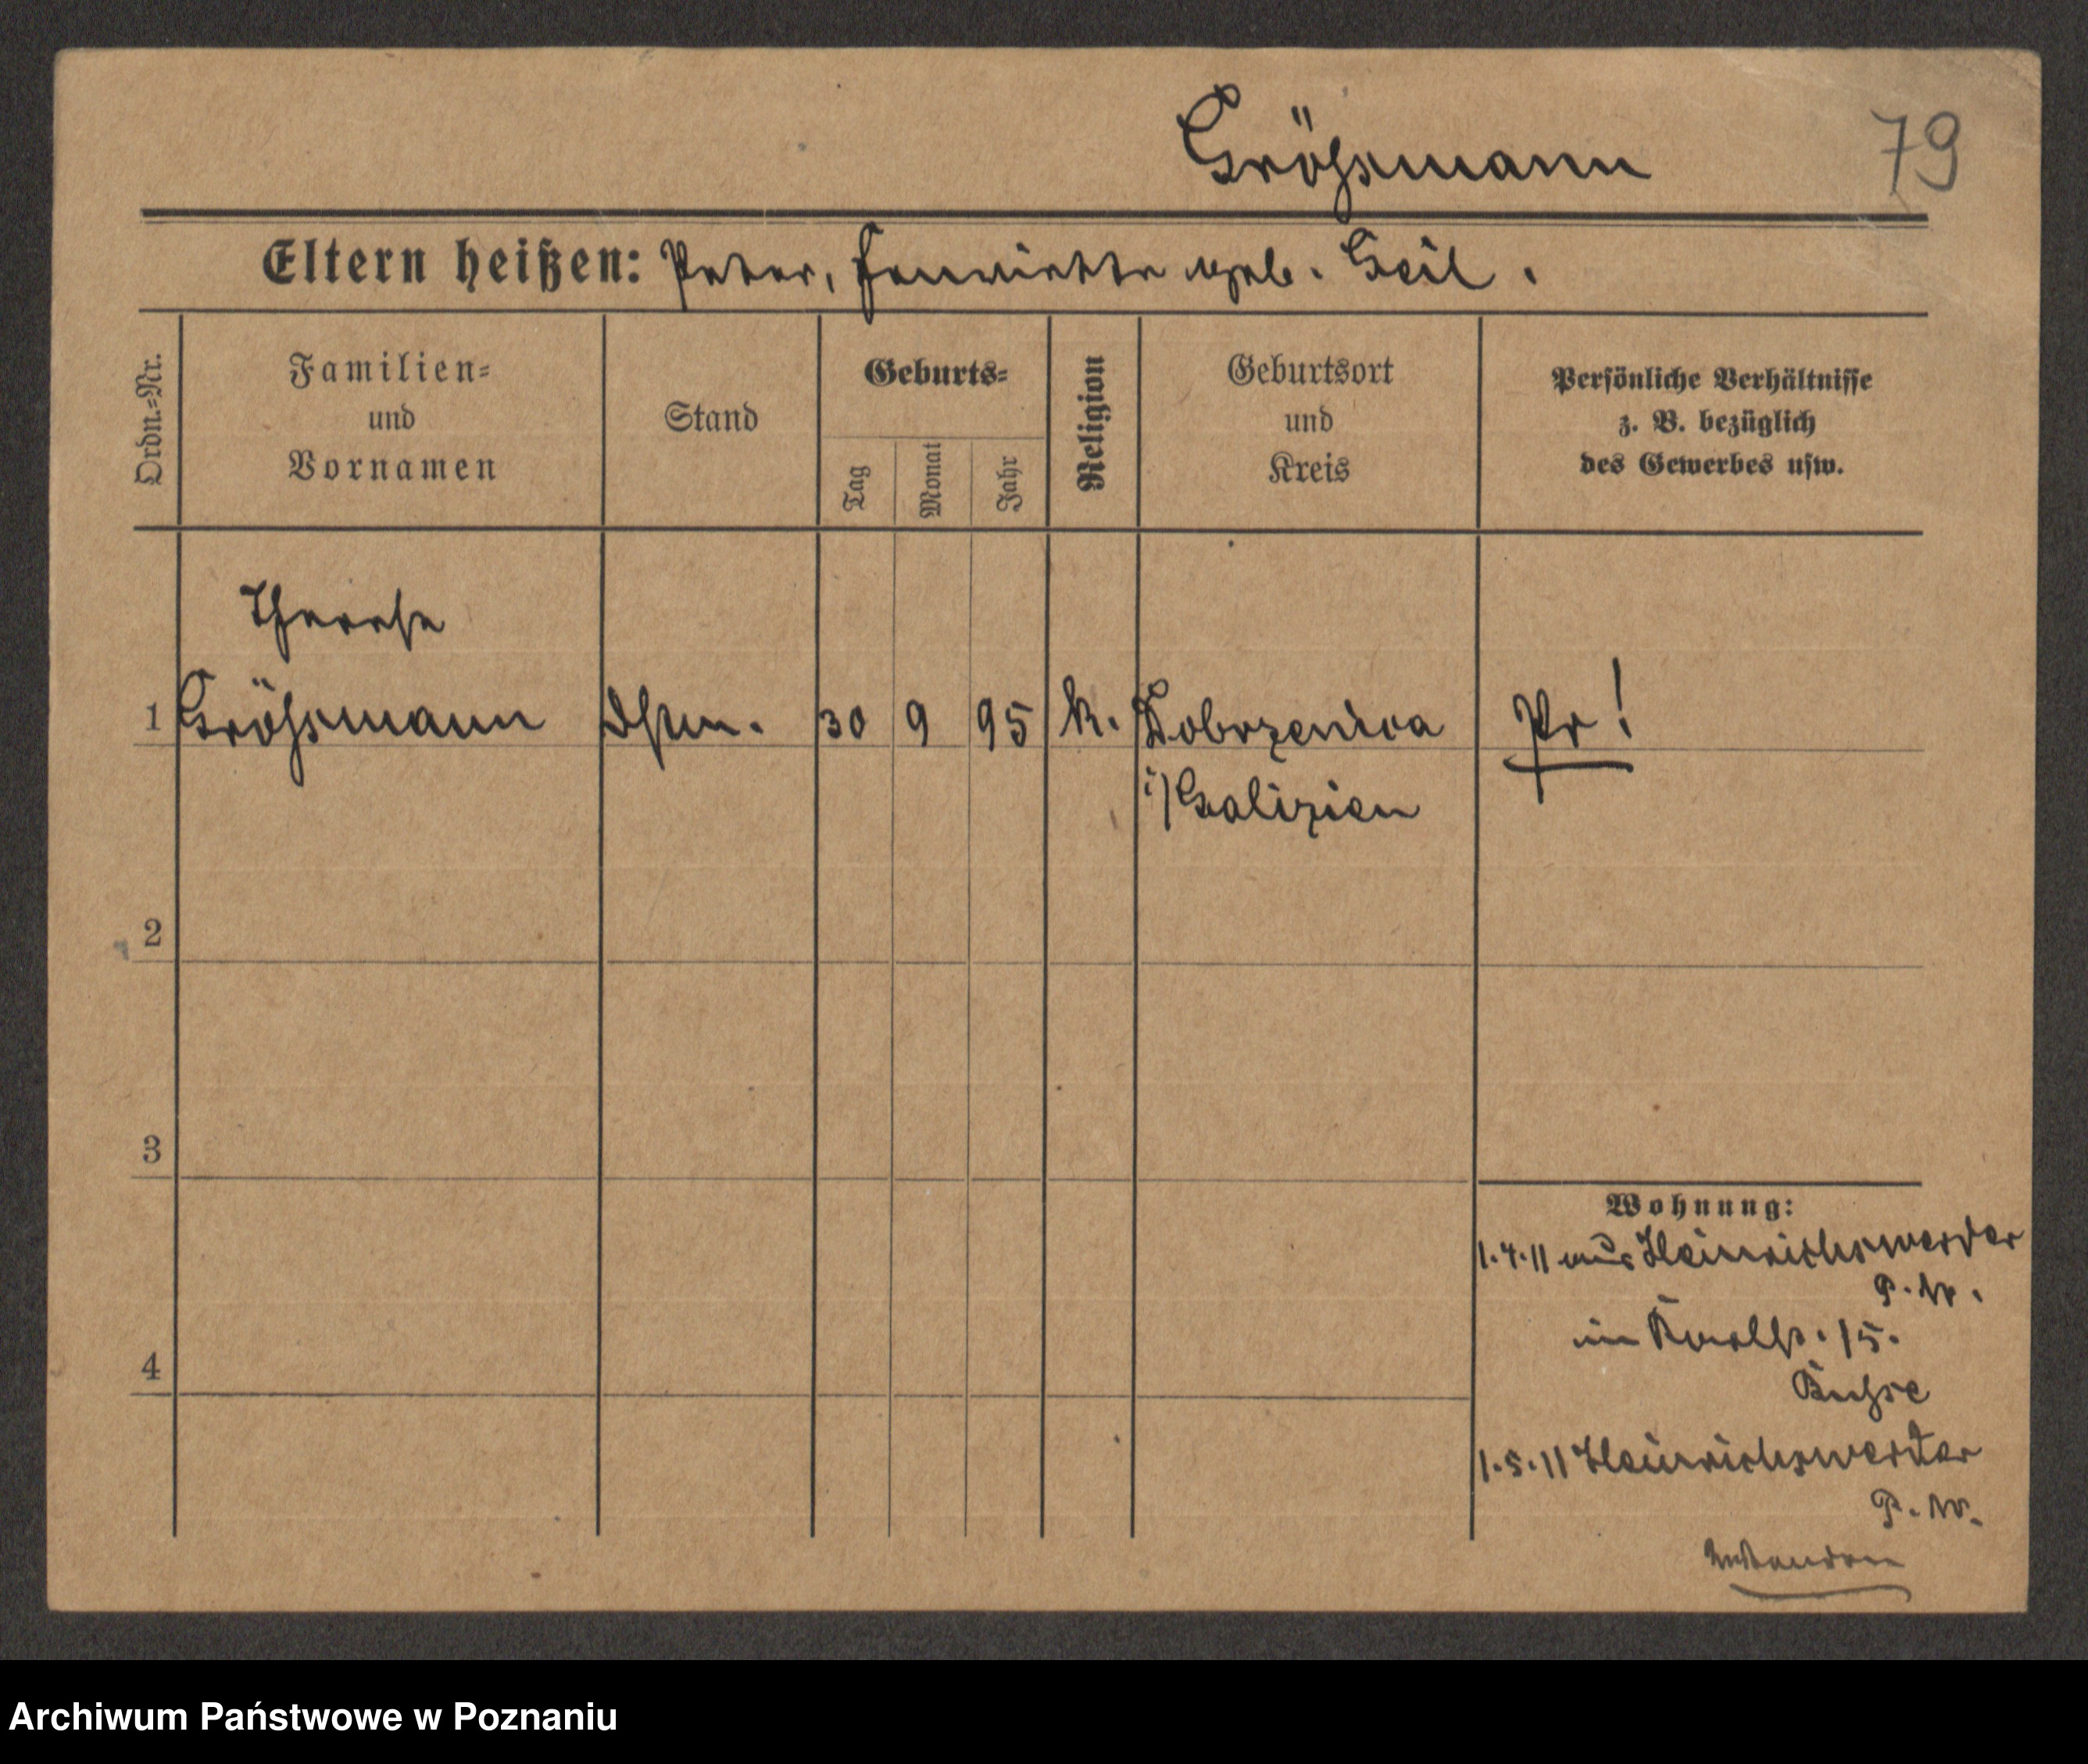 Größmann
79
Eltern heißen: Peter, Henriette geb. Geil.
Ordn.=Nr.
Familien=
und
Vornamen
Stand
Geburts=
Tag
Monat
Jahr
Religion
Geburtsort
und
Kreis
Persönliche Verhältnisse
z. B. bezüglich
des Gewerbes usw.
Therese
1 Größmann Dstm. 30 9 95 k. Dobrzenica Pr!
i/Galizien
2
3
4
Wohnung:
1.4.11 aus Heinrichswerder
P.W.
in 15.
Busse
1.5.11 Heinrichswerder
P.W.
Archiwum Państwowe w Poznaniu